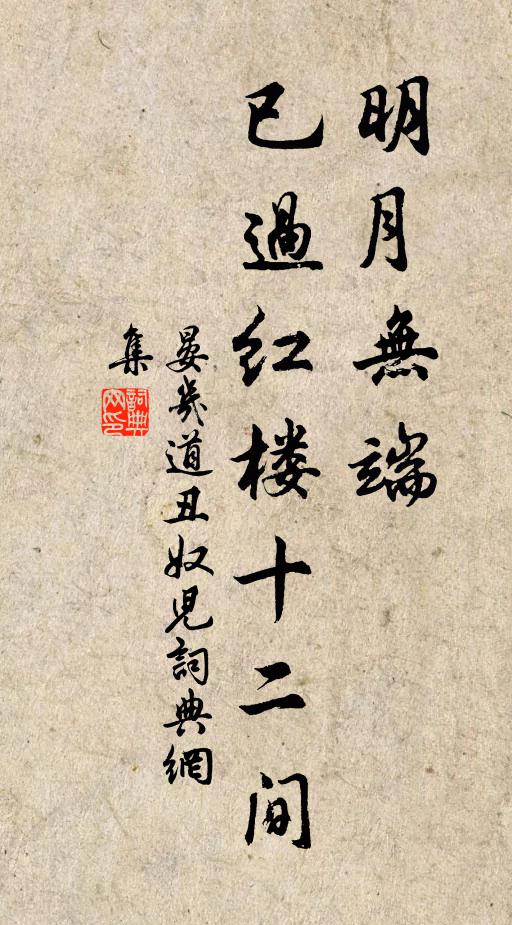 明月無端
已過紅楼十二間
晏幾道丑奴児詞典網
集
詞典網印